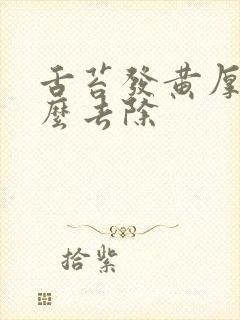 舌苔發黃厚
麼去除
拾紫